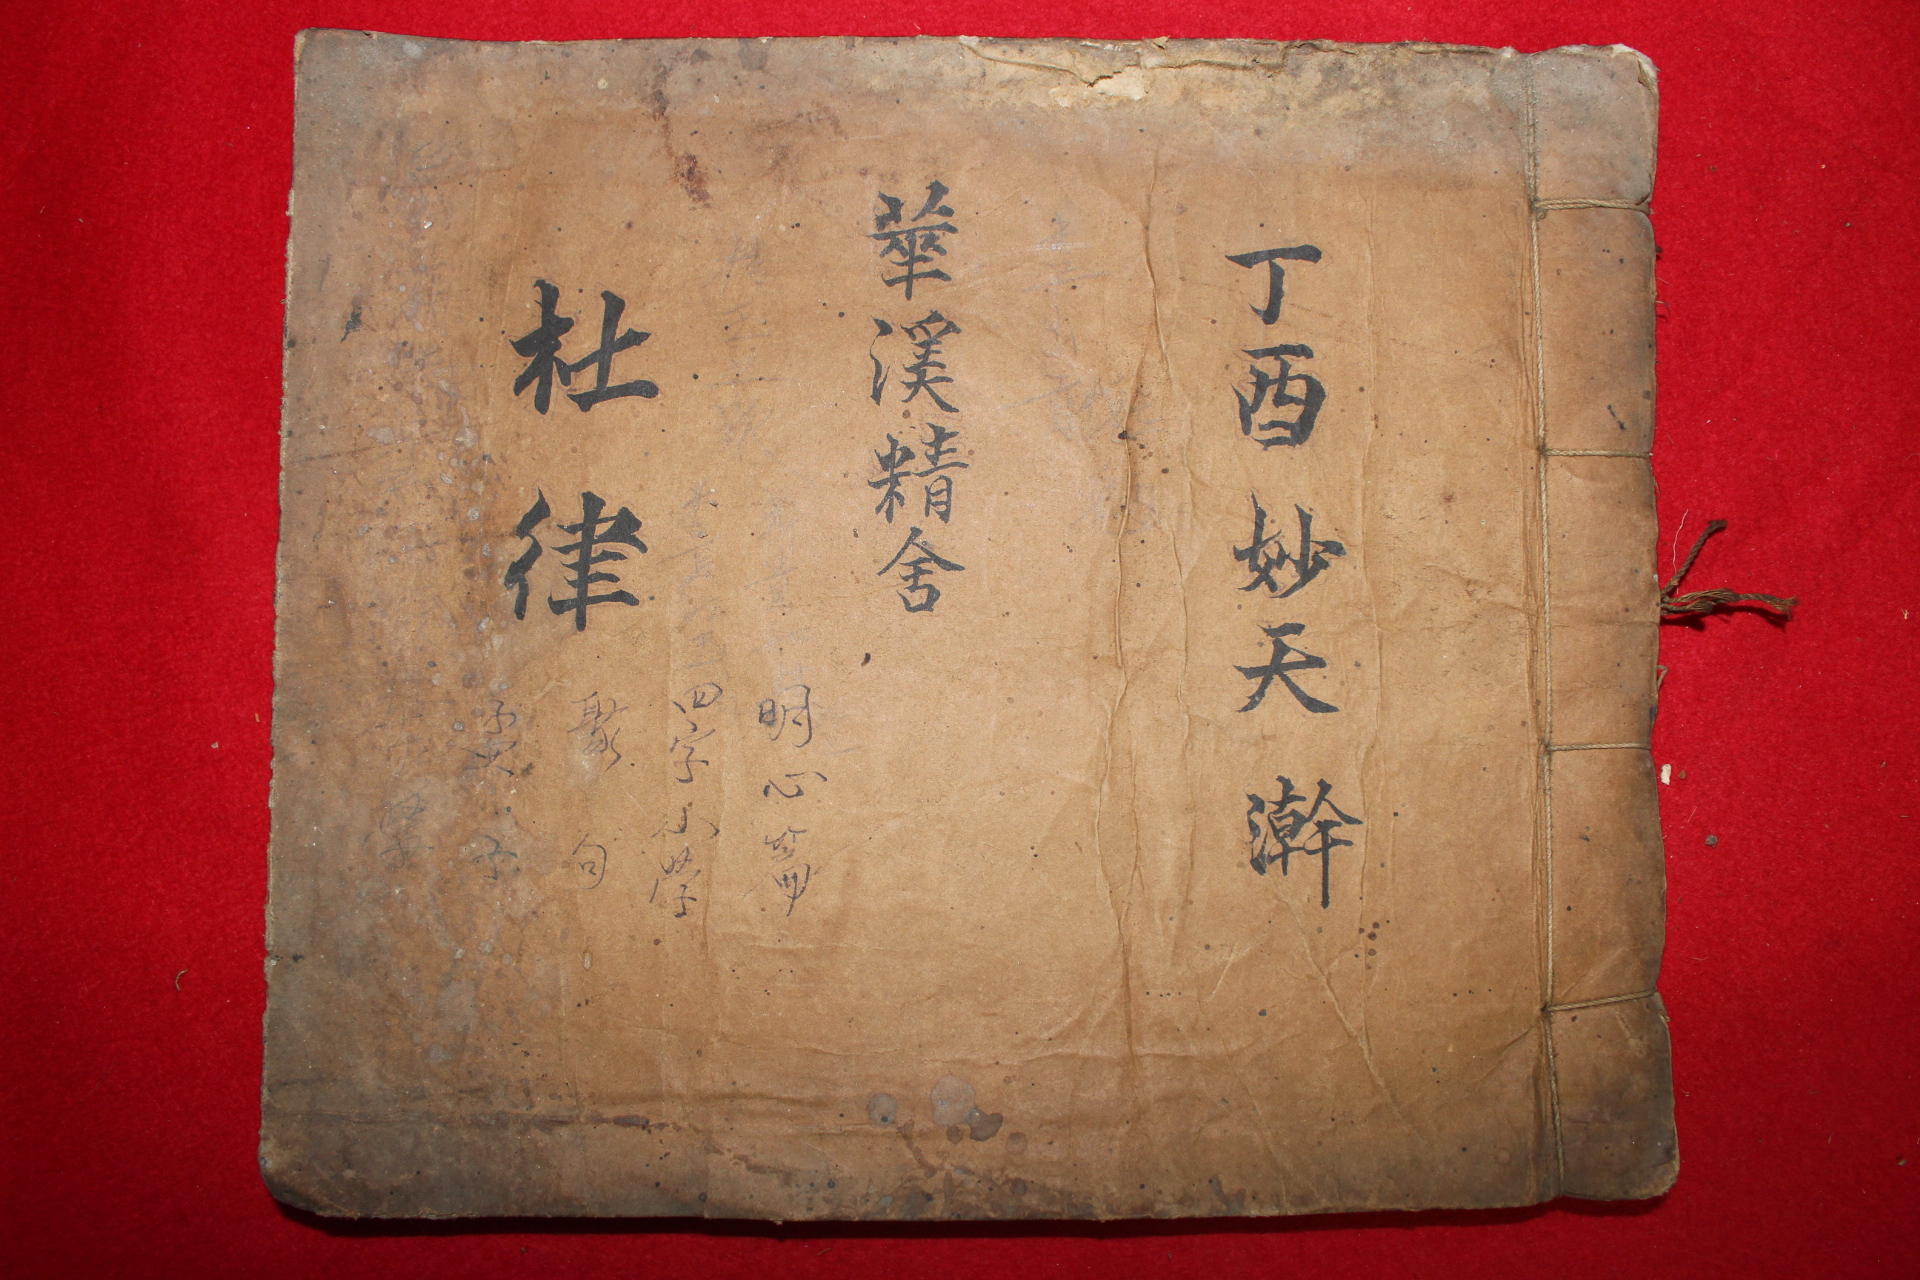 丁酉妙天澣
華溪精舍
杜律
明心篇
四字小學
聚句